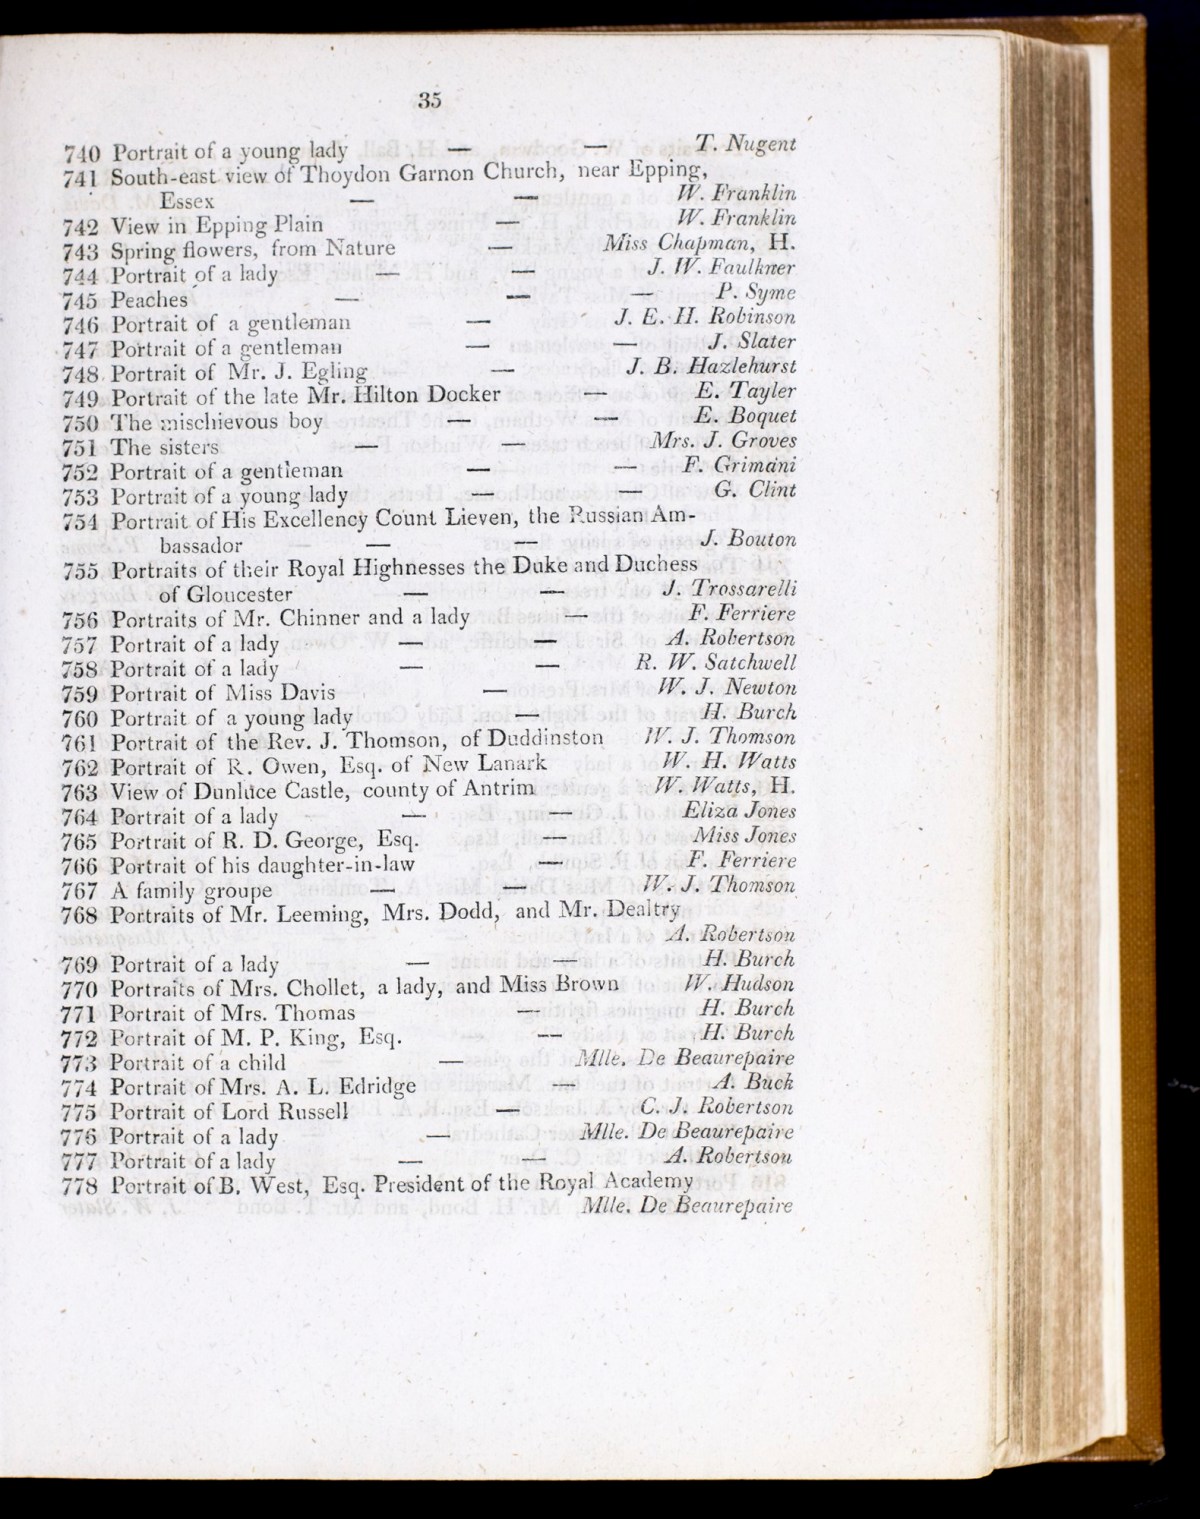 35
740 Portrait of a young lady — — T. Nugent
741 South-east view of Thoydon Garnon Church, near Epping,
Essex — — W. Franklin
742 View in Epping Plain — W. Franklin
743 Spring flowers, from Nature — Miss Chapman, H.
744 Portrait of a lady — — J. W. Faulkner
745 Peaches — — — P. Syme
746 Portrait of a gentleman — J. E. H. Robinson
747 Portrait of a gentleman — — J. Slater
748 Portrait of Mr. J. Egling — J. B. Hazlehurst
749 Portrait of the late Mr. Hilton Docker — E. Tayler
750 The mischievous boy — — E. Boquet
751 The sisters — — Mrs. J. Groves
752 Portrait of a gentleman — — F. Grimani
753 Portrait of a young lady — — G. Clint
754 Portrait of His Excellency Count Lieven, the Russian Am-
bassador — — J. Bouton
755 Portraits of their Royal Highnesses the Duke and Duchess
of Gloucester — — J. Trossarelli
756 Portraits of Mr. Chinner and a lady — F. Ferriere
757 Portrait of a lady — — A. Robertson
758 Portrait of a lady — — R. W. Satchwell
759 Portrait of Miss Davis — W. J. Newton
760 Portrait of a young lady — H. Burch
761 Portrait of the Rev. J. Thomson, of Duddinston W. J. Thomson
762 Portrait of R. Owen, Esq. of New Lanark W. H. Watts
763 View of Dunluce Castle, county of Antrim W. Watts, H.
764 Portrait of a lady — — Eliza Jones
765 Portrait of R. D. George, Esq. — Miss Jones
766 Portrait of his daughter-in-law — F. Ferriere
767 A family groupe — — W. J. Thomson
768 Portraits of Mr. Leeming, Mrs. Dodd, and Mr. Dealtry
A. Robertson
769 Portrait of a lady — — H. Burch
770 Portraits of Mrs. Chollet, a lady, and Miss Brown W. Hudson
771 Portrait of Mrs. Thomas — H. Burch
772 Portrait of M. P. King, Esq. — H. Burch
773 Portrait of a child — Mlle. De Beaurepaire
774 Portrait of Mrs. A. L. Edridge — A. Buck
775 Portrait of Lord Russell — C. J. Robertson
776 Portrait of a lady — Mlle. De Beaurepaire
777 Portrait of a lady — — A. Robertson
778 Portrait of B. West, Esq. President of the Royal Academy
Mlle. De Beaurepaire